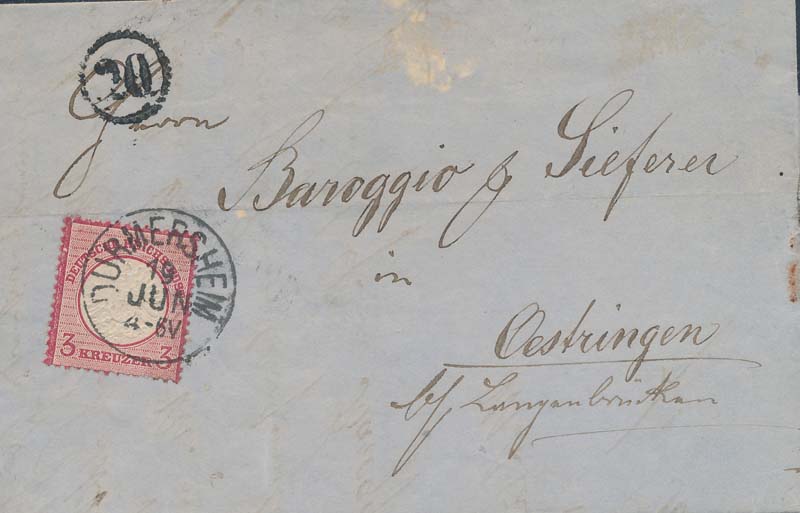 20
Herrn
Baroggio & Sieferer
in
Oestringen
b/ Langenbrücken
DURMERSHEIM
19
JUN
4-6V
DEUTSCHE REICHS-POST
3 KREUZER 3